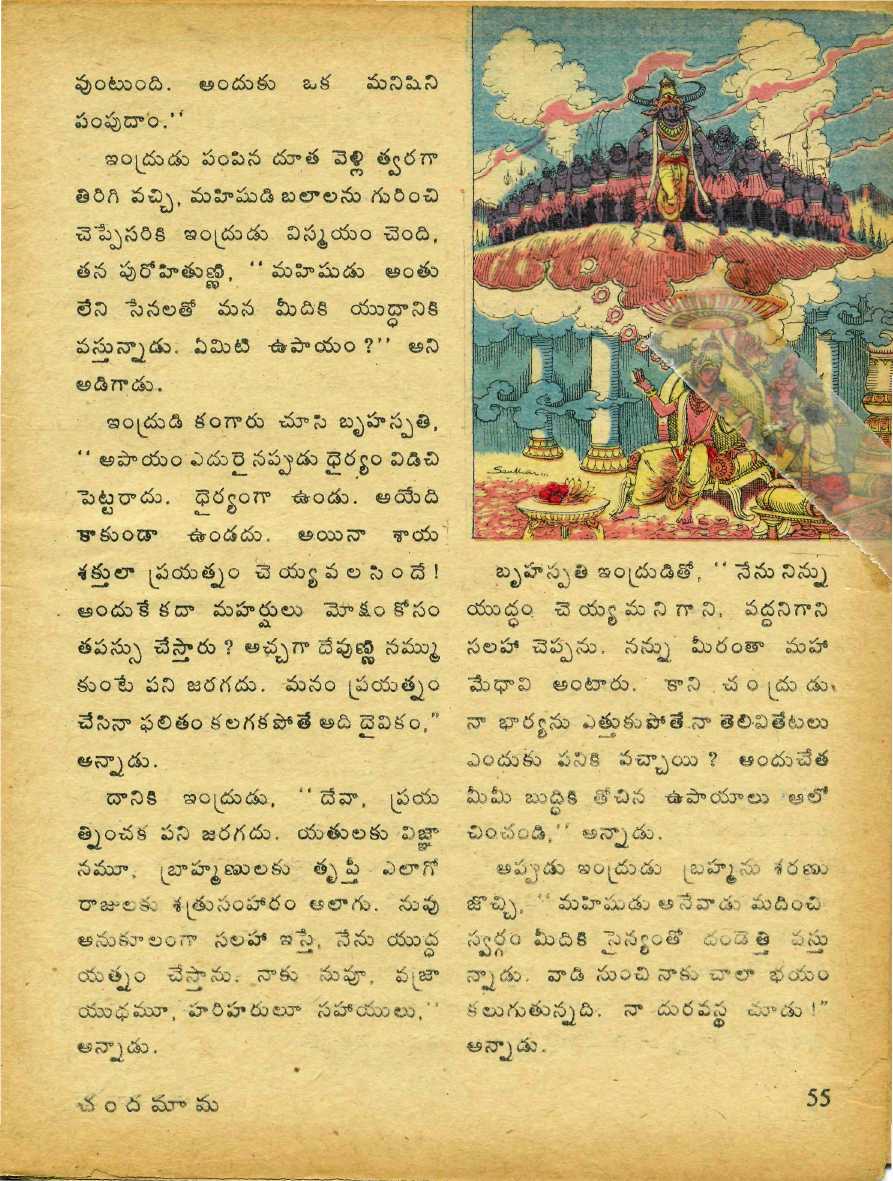 వుంటుంది. అందుకు ఒక మనిషిని
పంపుదాం.''
ఇంద్రుడు పంపిన దూత వెళ్లి త్వరగా
తిరిగి వచ్చి, మహిషుడి బలాలను గురించి
చెప్పేసరికి ఇంద్రుడు విస్మయం చెంది,
తన పురోహితుణ్ణి, ''మహిషుడు అంతు
లేని సేనలతో మన మీదికి యుద్ధానికి
వస్తున్నాడు. ఏమిటి ఉపాయం?'' అని
అడిగాడు.
ఇంద్రుడి కంగారు చూసి బృహస్పతి,
''అపాయం ఎదురైనప్పుడు ధైర్యం విడిచి
పెట్టరాదు. ధైర్యంగా ఉండు. అయేది
కాకుండా ఉండదు. అయినా శాయ
శక్తులా ప్రయత్నం చెయ్యవలసిందే!
అందుకే కదా మహర్షులు మోక్షం కోసం
తపస్సు చేస్తారు? అచ్చగా దేవుణ్ణి నమ్ము
కుంటే పని జరగదు. మనం ప్రయత్నం
చేసినా ఫలితం కలగకపోతే అది దైవికం,''
అన్నాడు.
దానికి ఇంద్రుడు, ''దేవా, ప్రయ
త్నించక పని జరగదు. యతులకు విజ్ఞా
నమూ, బ్రాహ్మణులకు తృప్తీ ఎలాగో
రాజులకు శత్రుసంహారం అలాగు. నువు
అనుకూలంగా సలహా ఇస్తే, నేను యుద్ధ
యత్నం చేస్తాను. నాకు నువూ, వజ్రా
యుధమూ, హరిహరులూ సహాయులు,''
అన్నాడు.
Sankar...
బృహస్పతి ఇంద్రుడితో, ''నేను నిన్ను
యుద్ధం చెయ్యమనిగాని, వద్దనిగాని
సలహా చెప్పను. నన్ను మీరంతా మహా
మేధావి అంటారు. కాని చంద్రుడు
నా భార్యను ఎత్తుకుపోతే నా తెలివితేటలు
ఎందుకు పనికి వచ్చాయి? అందుచేత
మీమీ బుద్ధికి తోచిన ఉపాయాలు ఆలో
చించండి,'' అన్నాడు.
అప్పుడు ఇంద్రుడు బ్రహ్మను శరణు
జొచ్చి, ''మహిషుడు అనేవాడు మదించి
స్వర్గం మీదికి సైన్యంతో దండెత్తి వస్తు
న్నాడు. వాడి నుంచి నాకు చాలా భయం
కలుగుతున్నది. నా దురవస్థ చూడు!''
అన్నాడు.
చందమామ
55